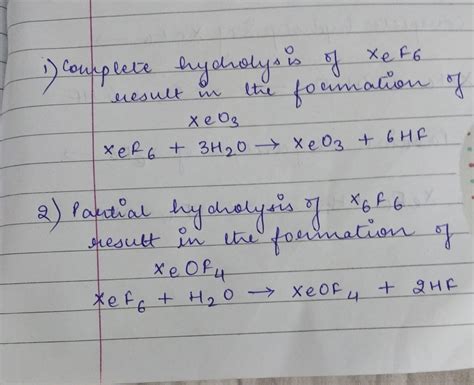 1) Complete hydrolysis of XeF6
result in the formation of
XeO3
XeF6 + 3H2O → XeO3 + 6HF
2) Partial hydrolysis of X6F6
result in the formation of
XeOF4
XeF6 + H2O → XeOF4 + 2HF